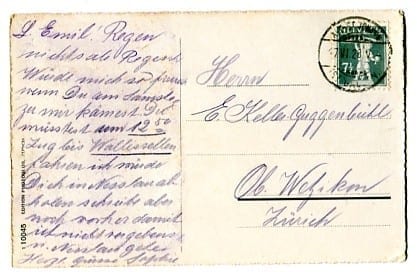 L. Emil! Regen
nichts als Regen!
Würde mich so freuen
wenn Du am Samstag
zu mir kämest. Du
müsstest den 12 50
Zug bis Wallisellen
fahren ich würde
Dich in Nesslau ab
holen schreibe aber
noch vorher damit
ich nicht vergebens
n. Nesslau gehe.
Herzl. Grüsse Sophie
Herrn
E. Keller-Guggenbühl
Ob. Wetzikon
Zürich
HELVETIA
7½
10045